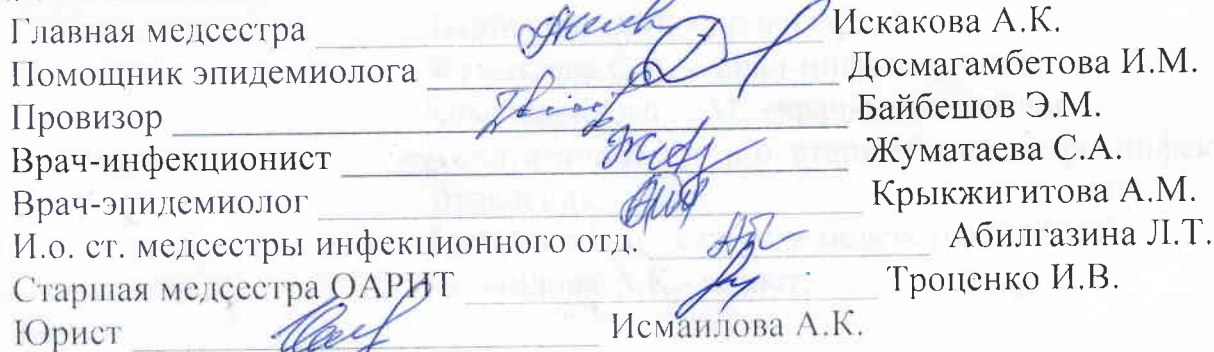 Главная медсестра Искакова А.К.
Помощник эпидемиолога Досмагамбетова И.М.
Провизор Байбешов Э.М.
Врач-инфекционист Жуматаева С.А.
Врач-эпидемиолог Крыкжигитова А.М.
И.о. ст. медсестры инфекционного отд. Абилгазина Л.Т.
Старшая медсестра ОАРИТ Троценко И.В.
Юрист Исмаилова А.К.